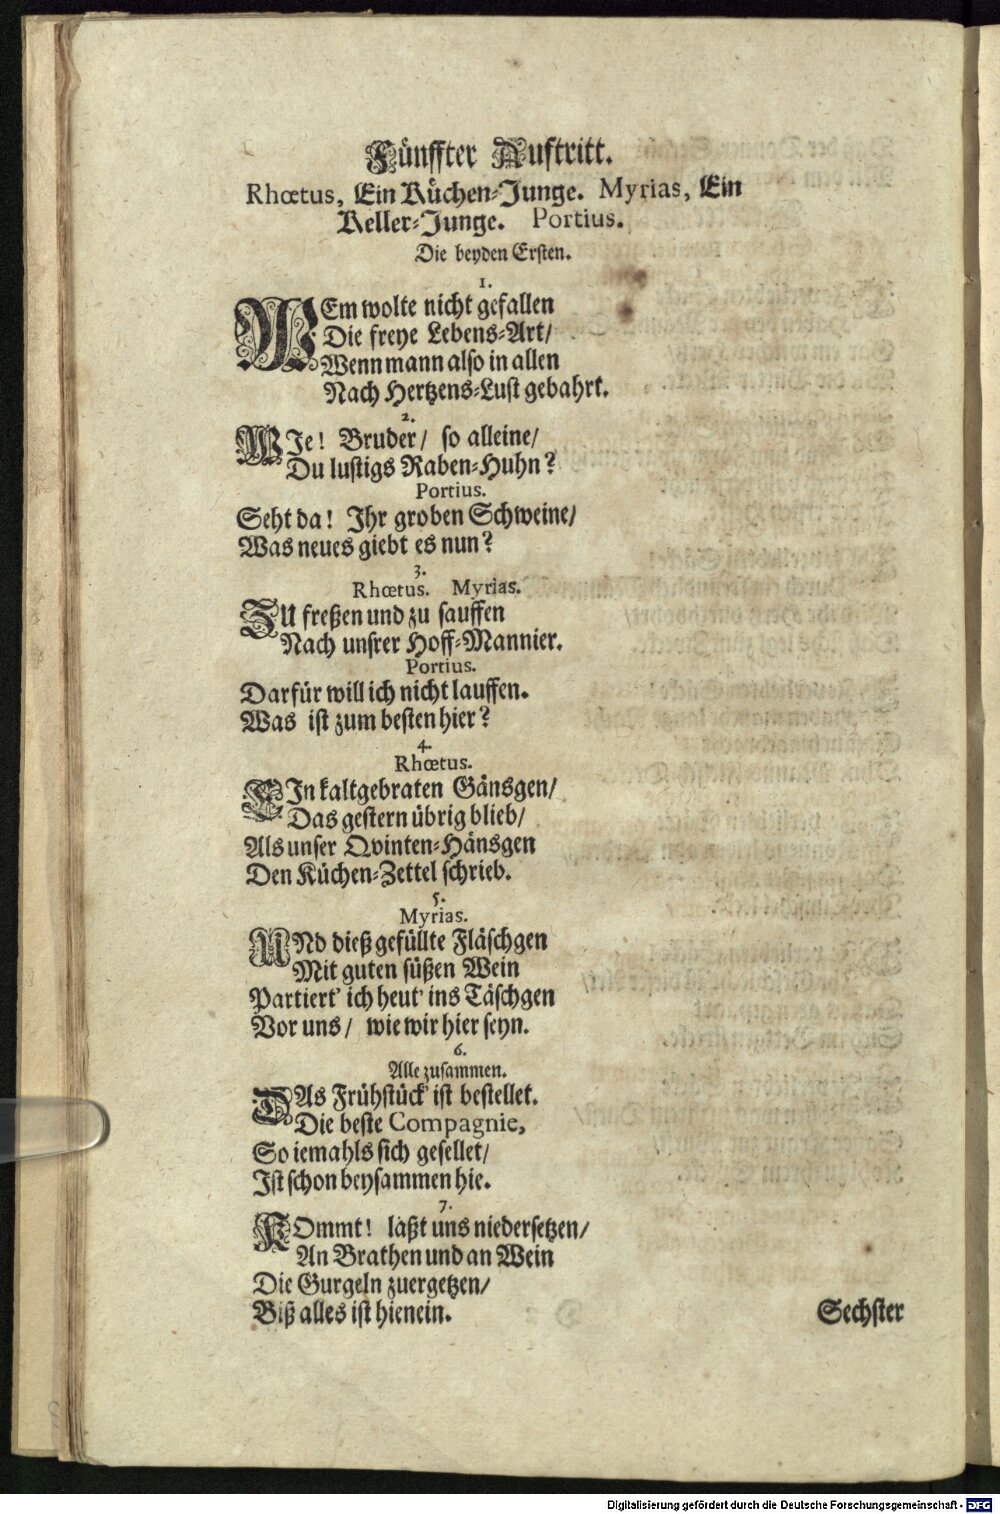 Fünffter Auftritt.
Rhœtus, Ein Küchen-Junge. Myrias, Ein
Keller-Junge. Portius.
Die beyden Ersten.
1.
WEm wolte nicht gefallen
Die freye Lebens-Art/
Wenn mann also in allen
Nach Hertzens-Lust gebahrt.
2.
WIe! Bruder/ so alleine/
Du lustigs Raben-Huhn?
Portius.
Seht da! Ihr groben Schweine/
Was neues giebt es nun?
3.
Rhœtus. Myrias.
ZU freßen und zu sauffen
Nach unsrer Hoff-Mannier.
Portius.
Darfür will ich nicht lauffen.
Was ist zum besten hier?
4.
Rhœtus.
EIn kaltgebraten Gänsgen/
Das gestern übrig blieb/
Als unser Qvinten-Hänsgen
Den Küchen-Zettel schrieb.
5.
Myrias.
UNd dieß gefüllte Fläschgen
Mit guten süßen Wein
Partiert' ich heut' ins Täschgen
Vor uns/ wie wir hier seyn.
6.
Alle zusammen.
DAs Frühstück' ist bestellet.
Die beste Compagnie,
So iemahls sich gesellet/
Ist schon beysammen hie.
7.
KOmmt! laßt uns niedersetzen/
An Brathen und an Wein
Die Gurgeln zuergetzen/
Biß alles ist hienein.
Sechster
Digitalisierung gefördert durch die Deutsche Forschungsgemeinschaft - DFG